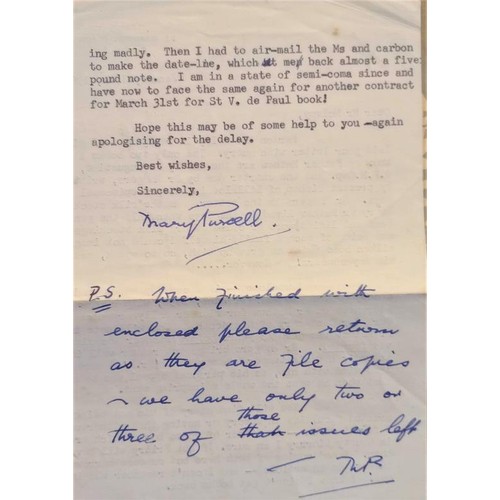 ing madly. Then I had to air-mail the Ms and carbon
to make the date-line, which me back almost a five
pound note. I am in a state of semi-coma since and
have now to face the same again for another contract
for March 31st for St V. de Paul book!
Hope this may be of some help to you -again
apologising for the delay.
Best wishes,
Sincerely,
Mary Purcell.
P.S. When finished with
enclosed please return
as they are file copies
- we have only two or
those
three of that issues left
- M.P.